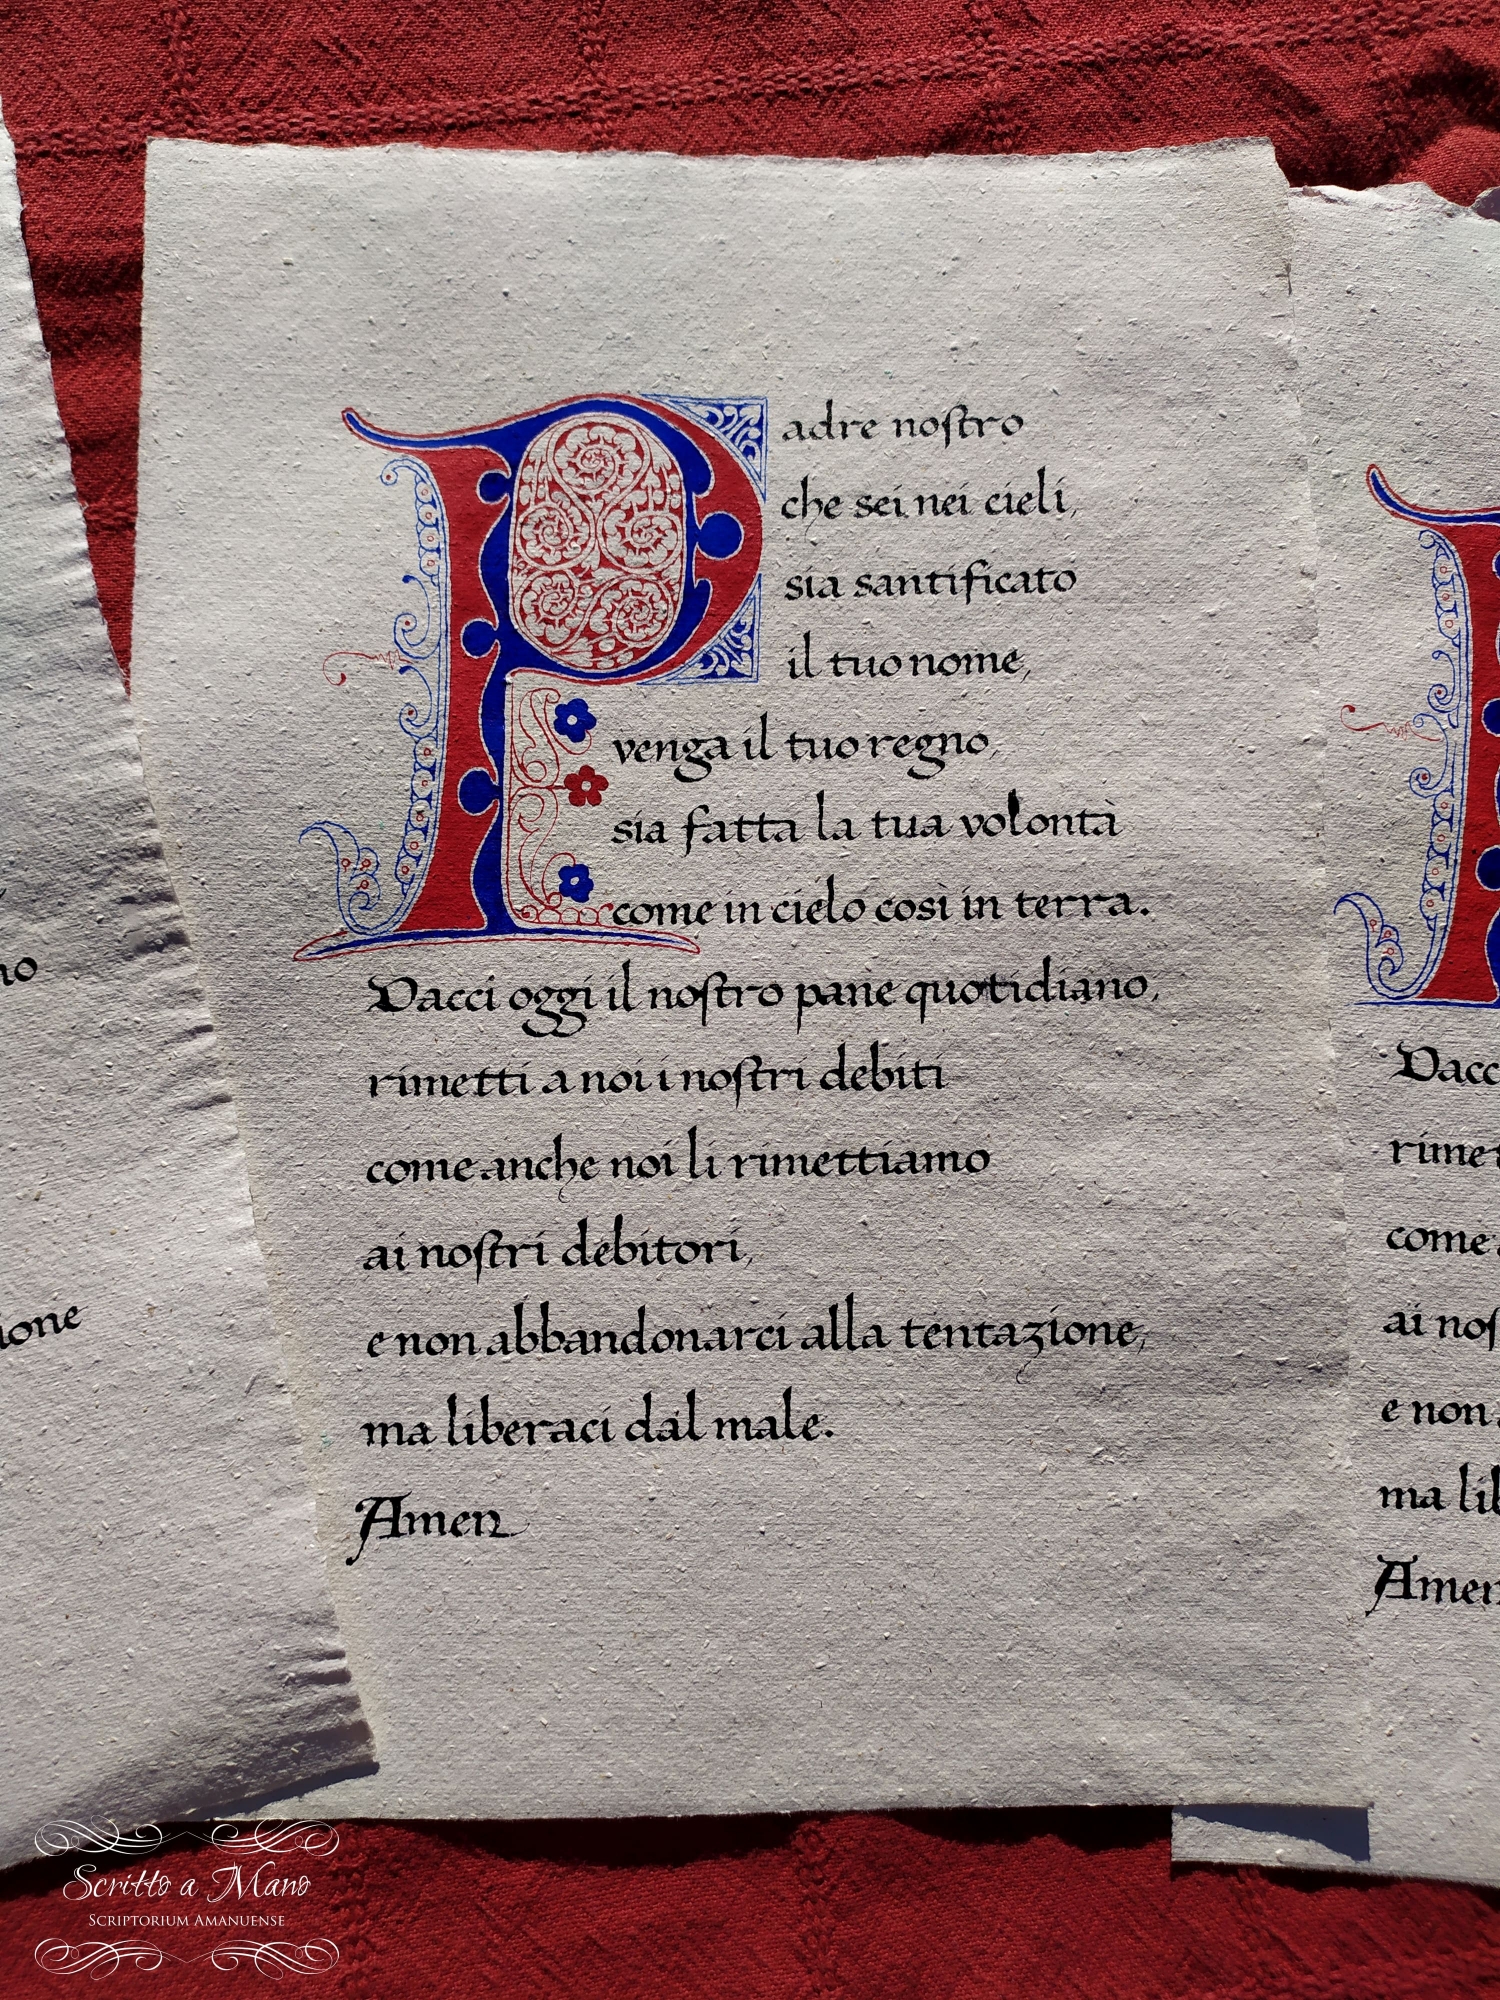 Padre nostro
che sei nei cieli,
sia santificato
il tuo nome,
venga il tuo regno,
sia fatta la tua volontà
come in cielo così in terra.
Dacci oggi il nostro pane quotidiano,
rimetti a noi i nostri debiti
come anche noi li rimettiamo
ai nostri debitori,
e non abbandonarci alla tentazione,
ma liberaci dal male.
Amen
Dacc
rimet
come
ai nos
e non
ma lib
Amen
no
ione
Scritto a Mano
Scriptorium Amanuense